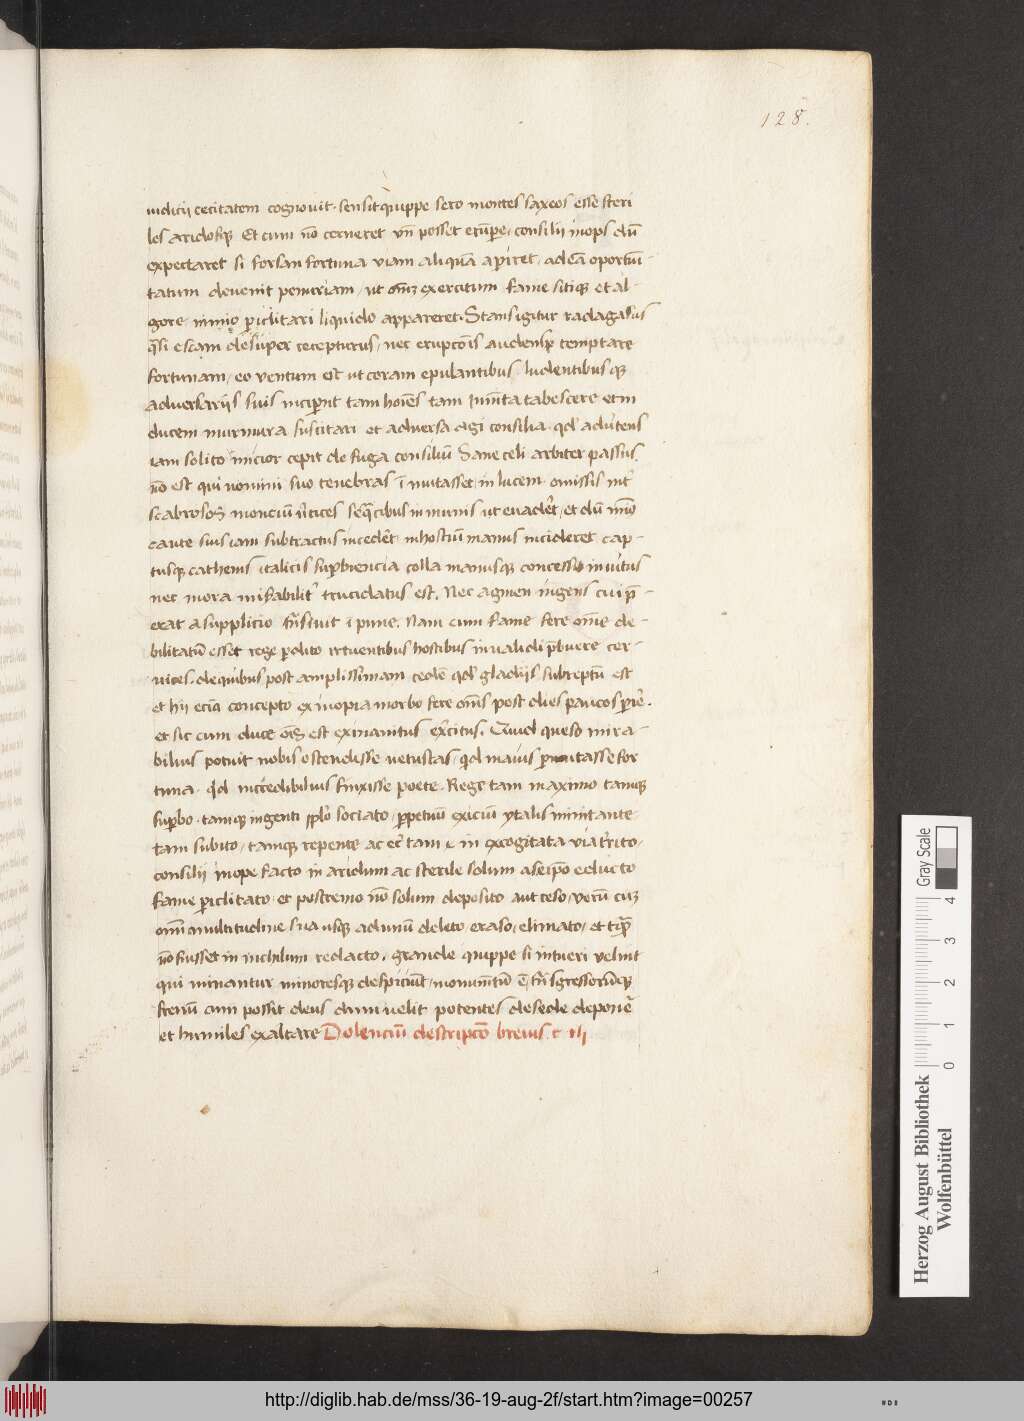 128.
iudicii cecitatem cognovit. sensit quippe sero montes saxeos esse steri
les aridosque Et cum nõ cerneret vñ posset erũpere, consilii inops dũ
expectaret si forsan fortuna viam aliquã apiret, ad eã oportuni-
tatum devenit penuriam, ut omẽ exercitum fame sitique et al-
gore nimio periclitari liquido appareret. Stans igitur radagasus
quasi escam desuper recepturus, nec erupcõis audensque temptare
fortunam, eo ventum est ut coram epulantibus ludentibusque
adversariis suis inciperent tam hoies tam iumẽta tabescere et in
ducem murmura suscitari et adversa agi consilia. qd advertens
iam solito micior cepit de fuga consiliũ Sane celi arbiter passus
nõ est qui nomini suo tenebras imitasset in lucem omissis inter
scabrosos monciũ vertices sequacibus in munis ut evaderet, et dũ minus
caute suis iam subtractus incederet in hostiũ manus incideret cap-
tusque cathenis italicis superbiencia colla manusque concessit invitus
nec mora mirabiliter trucidatus est. Nec agmen ingens cui per-
erat a supplicio transivit impune. Nam cum fame fere omne de-
bilitatũ esset rege perdito irruentibus hostibus invalidi prebuere cer-
vices. de quibus post amplissimam cedem qd gladiis subreptũ est
et hii eciã concepto ex inopia morbo fere oms post dies paucos perire.
et sic cum duce ois est exinanitus exercitus. Quid queso mira-
bilius potuit nobis ostendisse vetustas, quid maius permutasse for
tuna. quid incredibilius finxisse poete. Rege tam maximo tamque
superbo. tamque ingenti populo sociato, perpetuũ exiciũ ytalis minitante
tam subito, tamque repente ac eciam tam in excogitata via trito,
consilii inope facto in aridum ac sterile solum a seipso educto
fame periclitato et postremo nõ solum deposito aut ceso, verũ cum
omi multitudine sua usque ad unũ deleto eraso, elimato, et tanquam
nõ fuisset in nichilum redacto. grande quippe si intueri velint
qui minantur minoresque despiciunt, monumẽtũ est, transgressorumque
frenũ cum possit deus dum velit potentes de sede deponere
et humiles exaltare Dolenciũ descripcõ brevis. c iii
Gray Scale
0 1 2 3 4
Herzog August Bibliothek
Wolfenbüttel
http://diglib.hab.de/mss/36-19-aug-2f/start.htm?image=00257